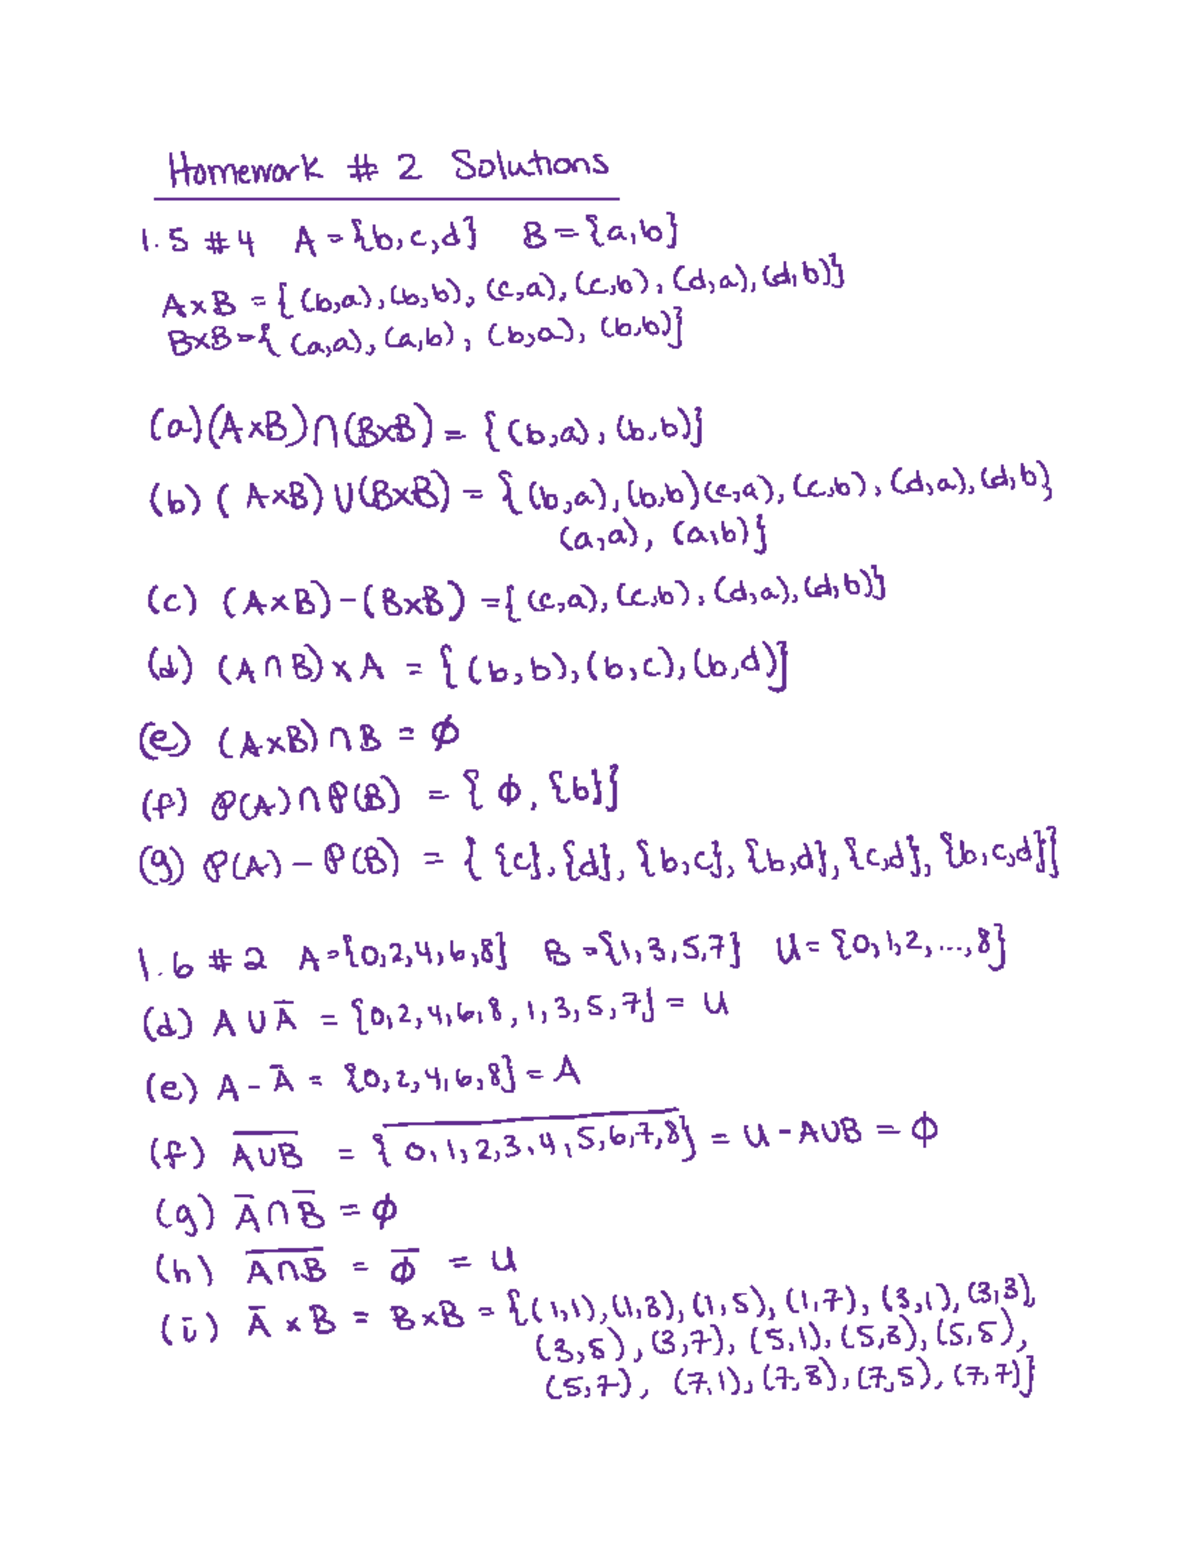 Homework # 2 Solutions
1.5 #4 A={b,c,d} B={a,b}
A×B = { (b,a),(b,b), (c,a),(c,b), (d,a),(d,b)}
B×B={ (a,a), (a,b), (b,a), (b,b)}
(a)(A×B)∩(B×B) = { (b,a), (b,b)}
(b) ( A×B) ∪(B×B) = { (b,a),(b,b)(c,a),(c,b), (d,a),(d,b),
(a,a), (a,b)}
(c) (A×B)-(B×B) ={(c,a),(c,b), (d,a),(d,b)}
(d) (A∩B)×A = { (b,b),(b,c),(b,d)}
(e) (A×B)∩B = ϕ
(f) ℘(A)∩℘(B) = { ϕ, {b}}
(g) ℘(A) - ℘(B) = { {c}, {d}, {b,c}, {b,d}, {c,d}, {b,c,d}}
1.6 #2 A={0,2,4,6,8} B={1,3,5,7} U= {0,1,2,...,8}
(d) A∪A̅ = {0,2,4,6,8,1,3,5,7} = U
(e) A-A̅ = {0,2,4,6,8} = A
(f) A̅∪̅B̅ = { 0̅,̅1̅,̅2̅,̅3̅,̅4̅,̅5̅,̅6̅,̅7̅,̅8̅} = U - A∪B = ϕ
(g) A̅∩B̅ = ϕ
(h) A̅∩̅B̅ = ϕ̅ = U
(i) A̅ × B = B×B = {(1,1),(1,3),(1,5),(1,7),(3,1),(3,3),
(3,5),(3,7),(5,1),(5,3),(5,5),
(5,7), (7,1),(7,3),(7,5),(7,7)}